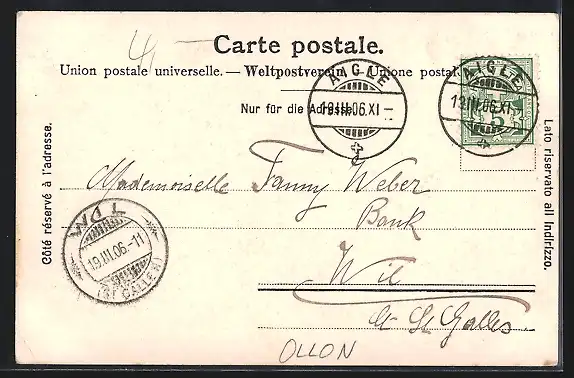 4,—
Carte postale.
Union postale universelle. — Weltpostverein. — Unione postale
Nur für die Adresse.
AIGLE
19.III.06.XI—
AIGLE
19.III.06.XI—
5
Côté réservé à l'adresse.
Lato riservato all indirizzo.
Mademoiselle Fanny Weber
Bank
Wil
Ct. St. Galles.
19.III.06.-11
(ST. GALLEN)
OLLON